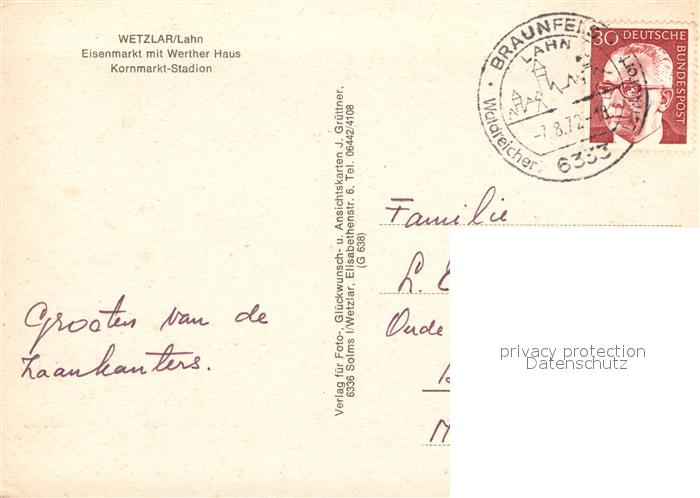 WETZLAR/Lahn
Eisenmarkt mit Werther Haus
Kornmarkt-Stadion
BRAUNFELS
LAHN
-7.8.72-18
Waldreicher
6333
30 DEUTSCHE
BUNDESPOST
Verlag für Foto-, Glückwunsch- u. Ansichtskarten J. Grüttner,
6336 Solms I/Wetzlar, Elisabethenstr. 6, Tel. 06442/4108
(G 638)
Familie
L.
Oude
Groeten van de
Zaankanters.
privacy protection
Datenschutz